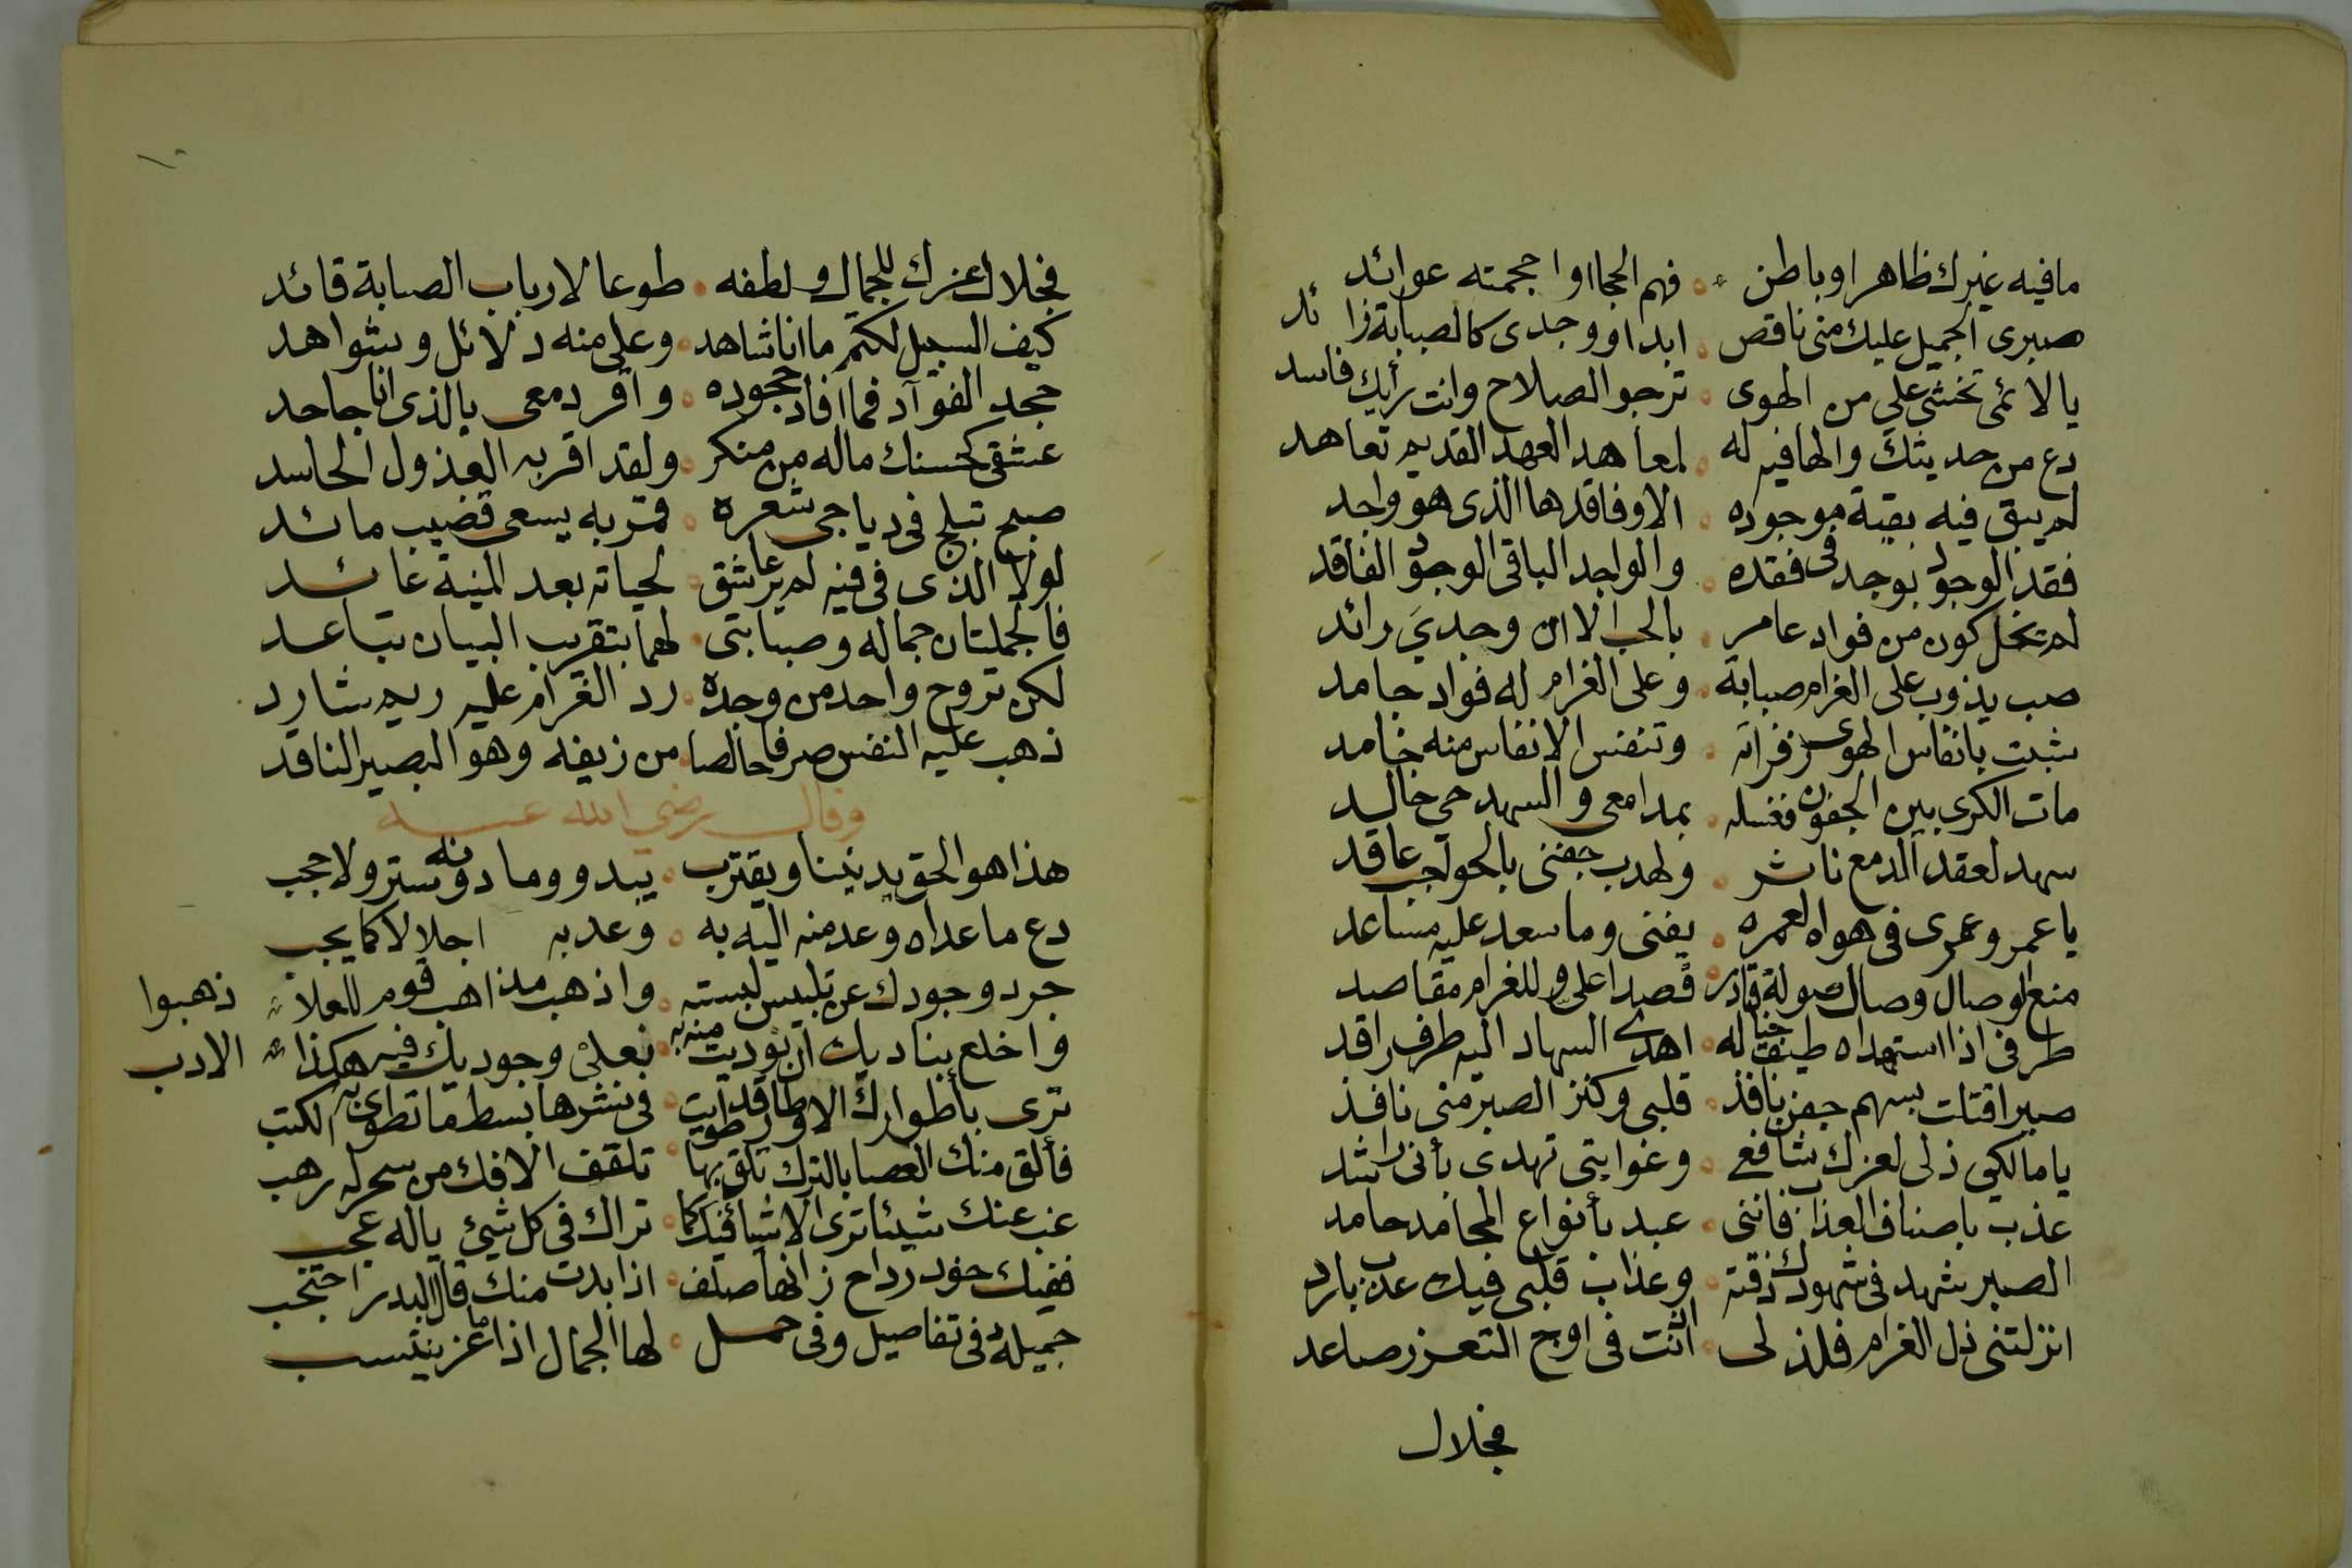 مافيه غيرك ظاهرا وباطن فهم الحجا اوا حجمته عوائد
صبرى الجميل عليك منى ناقص ابدا ووجدى كالصبابة زائد
يالائمى تخشى على من الهوى ترجو الصلاح وانت رأيك فاسد
دع من حديثك والها فيه له لمعاهد العهد القديم تعاهد
لم يبق فيه بقية موجوده الا وفاقدها الذى هو واجد
فقد الوجود بوجد فى فقده والواجد الباقى الوجود الفاقد
لم تخل كون من فواد عامر بالحب الا ان وجدي رائد
صب يذوب على الغرام صبابة وعلى الغرام له فواد جامد
شبت بانفاس الهوى زفراته وتنفس الانفاس منه خامد
مات الكرى بين الجفون فغسله بمدامعى والسهد حي خالد
سهد لعقد الدمع ناثر ولهدب جفنى بالحواجب عاقد
يا عمر وعمرى فى هواه لعمره يفنى وما سعد عليه مساعد
منع الوصال وصال صولة قادر قصدا على وللغرام مقاصد
طرفى اذا استهداه طيف خياله اهدى السهاد اليه طرف راقد
صبرا قتلت بسهم جفن نافذ قلبى وكنز الصبر منى نافذ
يا مالكى ذلى لعزك شافع وغوايتى تهدى بأنى راشد
عذب باصناف العذاب فاننى عبد بأنواع المحامد حامد
الصبر شهد فى شهودك ذقته وعذاب قلبى فيك عذب بارد
انزلتنى ذل الغرام فلذ لى اذ انت فى اوج التعزز صاعد
فجلال
فجلال عزك للجمال ولطفه طوعا لارباب الصبابة قائد
كيف السبيل لكتم ما انا شاهد وعلى منه دلائل وشواهد
جحد الفوآد فما افاد جحوده واقر دمعى بالذى انا جاحد
عشقى لحسنك ماله من منكر ولقد اقر به العذول الحاسد
صبح تبلج فى دياجى شعره قمر به يسعى قضيب مائد
لولا الذى فى فيه لم ير عاشق لحياته بعد المنية عائد
فالجملتان جماله وصبابتى لهما بتقريب البيان تباعد
لكن تروح واحد من وجده رد الغرام عليه ريم شارد
ذهب عليه النفس صرفا خالصا من زيفه وهو البصير الناقد
وقال رضي الله عنه
هذا هو الحق يدنينا ويقترب يبدو وما دونه ستر ولا حجب
دع ما عداه وعد منه اليه به وعد به اجلالا كما يجب
جرد وجودك عن تلبيس لبسته واذهب مذاهب قوم للعلا ذهبوا
واخلع بناديك ان نوديت منه به نعلى وجوديك فيه هكذا الادب
ترى بأطوارك الاوطار قد طويت فى نشرها بسط ما تطوى به الكتب
فألق منك العصا بالترك تلق بها تلقف الافك من سحر له رهب
غب عنك شيئا ترى الاشيا فيك كما تراك فى كل شيئ ياله عجب
ففيك خود رداح زانها صلف اذا بدت منك قال البدر احتجب
جميلة فى تفاصيل وفى جمل لها الجمال اذا ما عز ينتسب